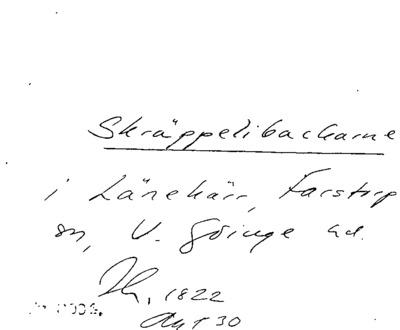 Skräppelibackarne
i Länekärr, Farstorp
sn, V. Göinge hd.
1822
Akt 30